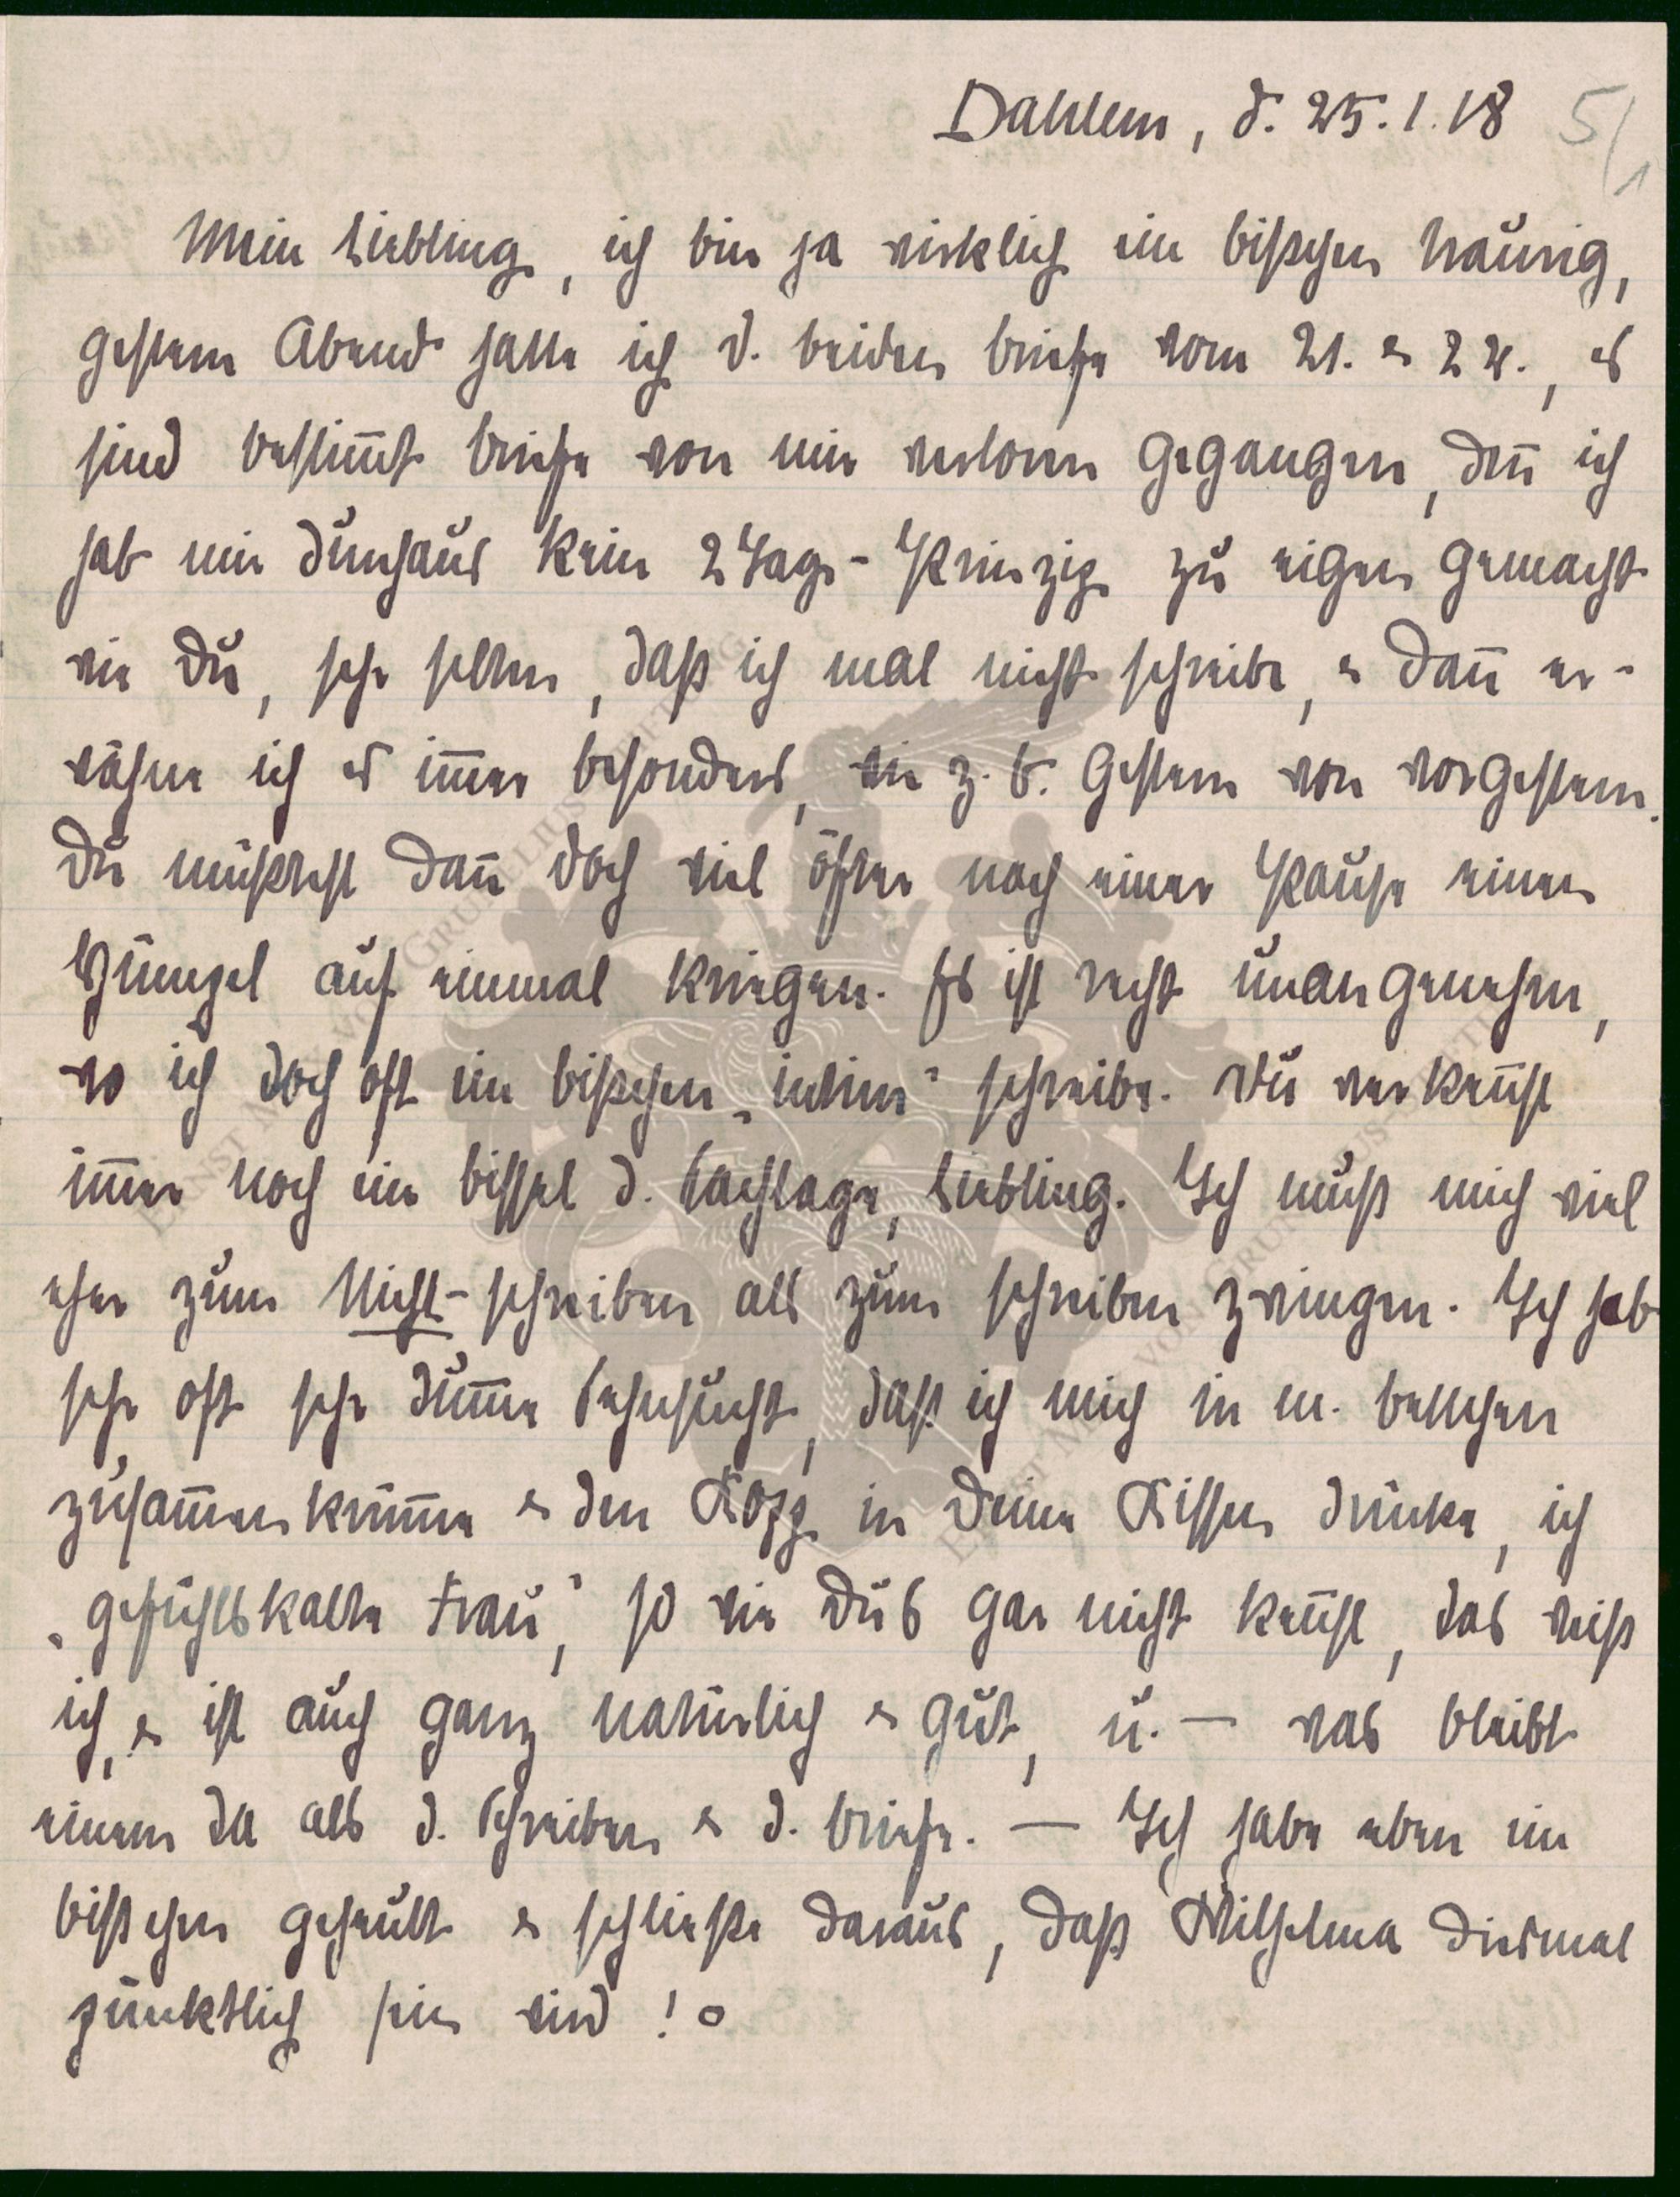 Dahlem, d. 25.1.18 5/1
Mein Liebling, ich bin ja wirklich ein bißchen traurig,
gestern Abend hatte ich d. beiden Briefe vom 21. & 22., es
sind bestim̅t Briefe von mir verloren gegangen, den̅ ich
hab mir durchaus kein 2 Tage-Prinzip zu eigen gemacht
wie Du, sehr selten, daß ich mal nicht schreibe, & dan̅ er-
wähne ich es im̅er besonders, wie z. B. gestern von vorgestern.
Du müßtest dan̅ doch viel öfter nach einer Pause einen
Büngel auf einmal kriegen. Es ist recht unangenehm,
wo ich doch oft ein bißchen „intim“ schreibe. Du verken̅st
im̅er noch ein bissel d. Sachlage, Liebling. Ich muß mich viel
eher zum Nicht-schreiben als zum schreiben zwingen. Ich hab
sehr oft sehr dum̅e Sehnsucht, daß ich mich in m. Bettchen
zusam̅enkrüm̅e & den Kopf in Deine Kissen drücke, ich
„gefühlskalte Frau“, so wie Du's gar nicht ken̅st, das weiß
ich, & ist auch ganz natürlich & gut, u. — was bleibt
einem da als d. Schreiben & d. Briefe. — Ich habe eben ein
bißchen geheult & schließe daraus, daß Wilhelma diesmal
pünktlich sein wird!
ERNST MAX VON GRUNELIUS-STIFTUNG